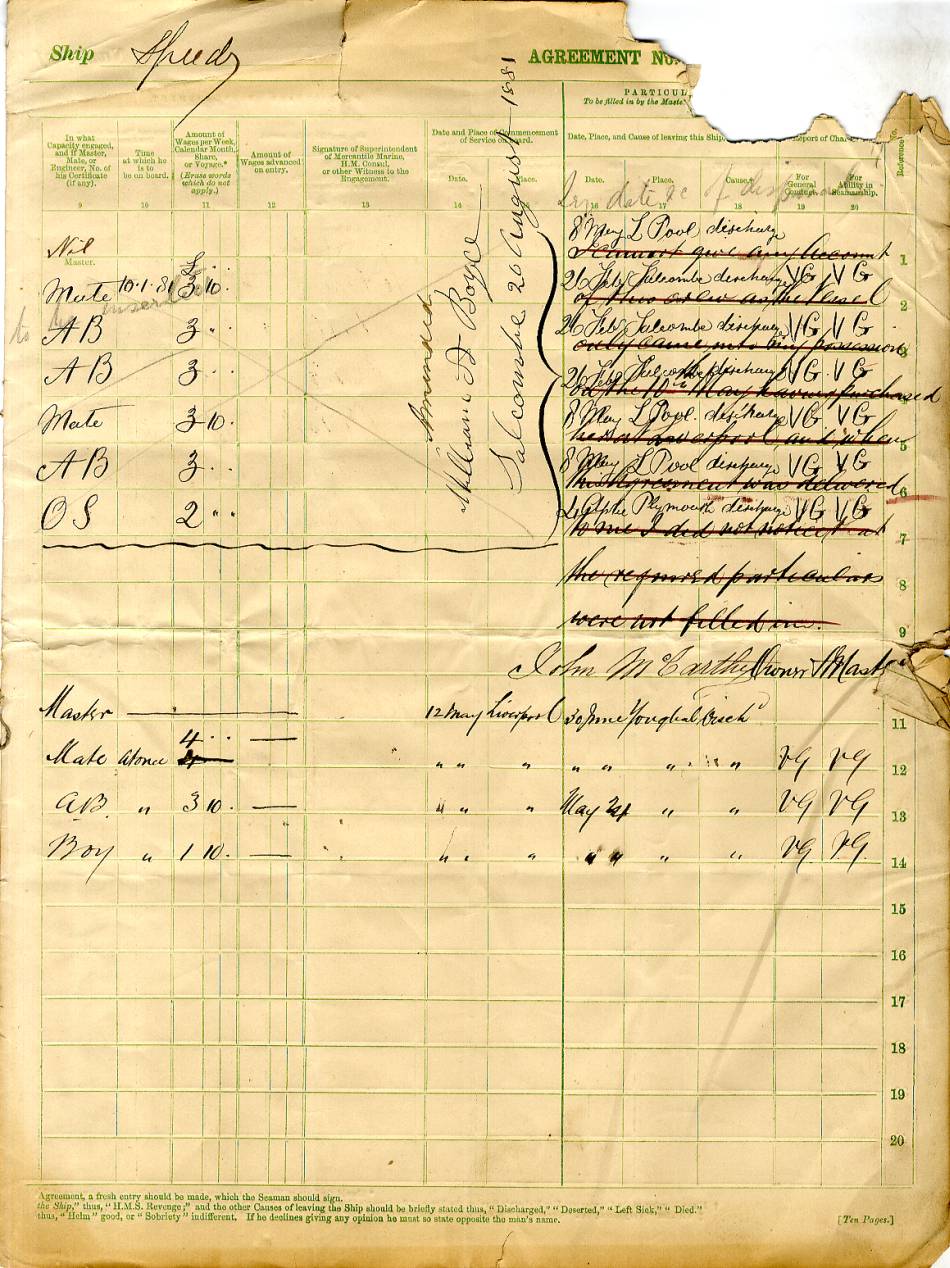 Ship Speedy AGREEMENT No.
PARTICUL
To be filled in by the Maste
In what Capacity engaged, and if Master, Mate, or Engineer, No. of his Certificate (if any).
Time at which he is to be on board.
Amount of Wages per Week, Calendar Month, Share, or Voyage.*
(Erase words which do not apply.)
Amount of Wages advanced on entry.
Signature of Superintendent of Mercantile Marine, H.M. Consul, or other Witness to the Engagement.
Date and Place of Commencement of Service on board.
Date. Place.
Date, Place, and Cause of leaving this Ship
Date. Place. Cause.
Report of Char
For General Conduct. For Ability in Seamanship.
Reference No.
9 10 11 12 13 14 15 16 17 18 19 20
date &c of
to be inserted
Amended
William J Boyce
Salcombe 20 August 1881
Nil
Master.
8 May L Pool discharge 1
I cannot give any Account
Mate 10.1.81 £ 3 10. 26 Feby Salcombe discharge VG VG 2
of this crew as the Vessel
AB 3 " " 26 Feby Salcombe discharge VG VG 3
only came into my possession
AB 3 " " 26 Feby Salcombe discharge VG VG 4
on the 10th May having purchased
Mate 3 10. 8 May L Pool. discharge VG VG 5
her at Liverpool and when
AB 3 " " 8 May L Pool discharge VG VG 6
this agreement was delivered
OS 2 " " Plymouth discharge VG VG 7
to me I did not notice that
the required particulars 8
were not filled in. 9
John McCarthy Owner & Master
Master 12 May Liverpool 30 June Youghal Disch 11
Mate at once 4 " " — " " " " " " " VG VG 12
A.B. " 3 10. — " " " May " " VG VG 13
Boy " 1 10. — " " " " " " " VG VG 14
15
16
17
18
19
20
Agreement, a fresh entry should be made, which the Seaman should sign.
the Ship," thus, "H.M.S. Revenge;" and the other Causes of leaving the Ship should be briefly stated thus, "Discharged," "Deserted," "Left Sick," "Died."
thus, "Helm" good, or "Sobriety" indifferent. If he declines giving any opinion he must so state opposite the man's name.
[Ten Pages.]